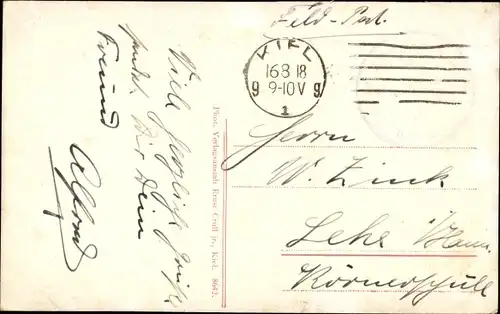 Feld-Post.
KIEL
16 8 18
g 9-10 V g
1
Herrn
W. Zink
Lehe i/Hann.
Körnerschule
Viele herzliche Grüße
sendet Dir Dein
Freund
Alfred
Phot. Verlagsanstalt Ernst Croll jr., Kiel. 8642.